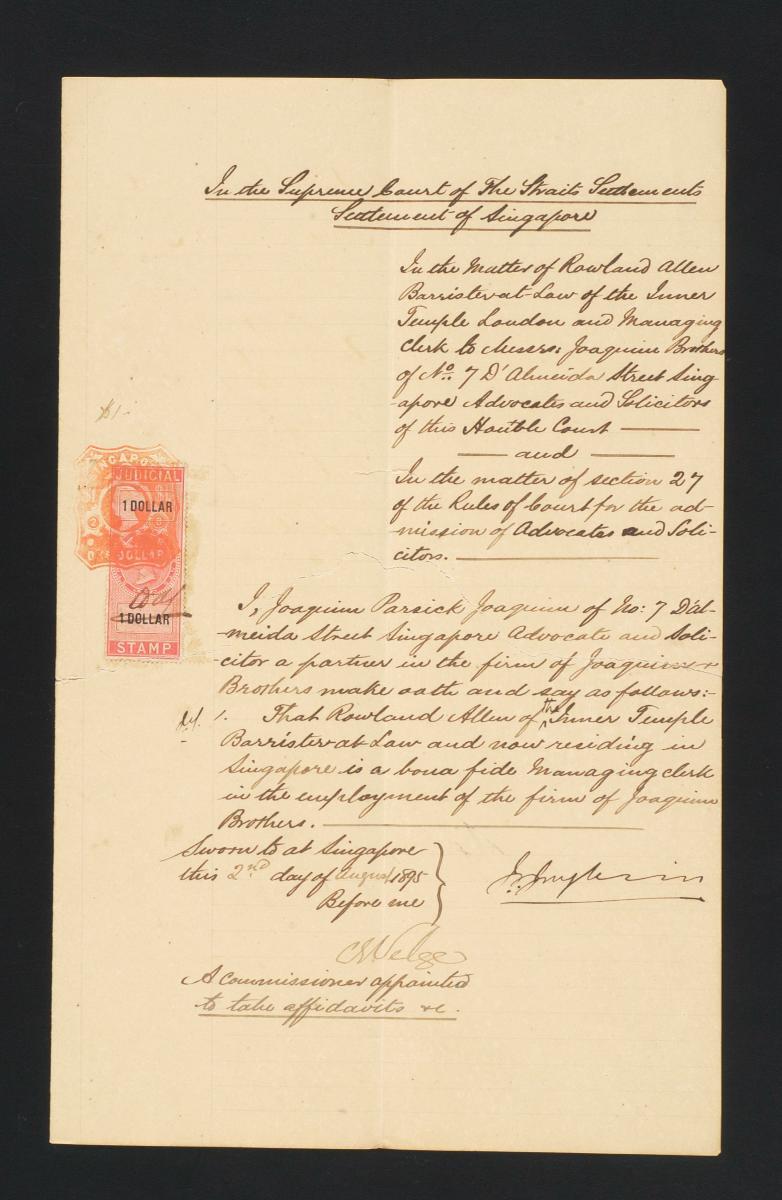 In the Supreme Court of The Straits Settlements
Settlement of Singapore
In the Matter of Rowland Allen
Barrister-at-Law of the Inner
Temple London and Managing
Clerk to Messrs: Joaquim Brothers
of No. 7 D'Almeida Street Sing-
-apore Advocates and Solicitors
of this Honble Court
and
In the matter of section 27
of the Rules of Court for the ad-
-mission of Advocates and Soli-
citors.
$1-
SINGAPORE
JUDICIAL
1 DOLLAR
ONE DOLLAR
1 DOLLAR
STAMP
I, Joaquim Parsick Joaquim of No: 7 D'Al-
-meida Street Singapore Advocate and Soli-
-citor a partner in the firm of Joaquim
Brothers make oath and say as follows:-
1. That Rowland Allen of the Inner Temple
Barrister-at-Law and now residing in
Singapore is a bona fide Managing clerk
in the employment of the firm of Joaquim
Brothers.
Sworn to at Singapore
this 2nd day of August 1895
Before me
A commissioner appointed
to take affidavits &c.